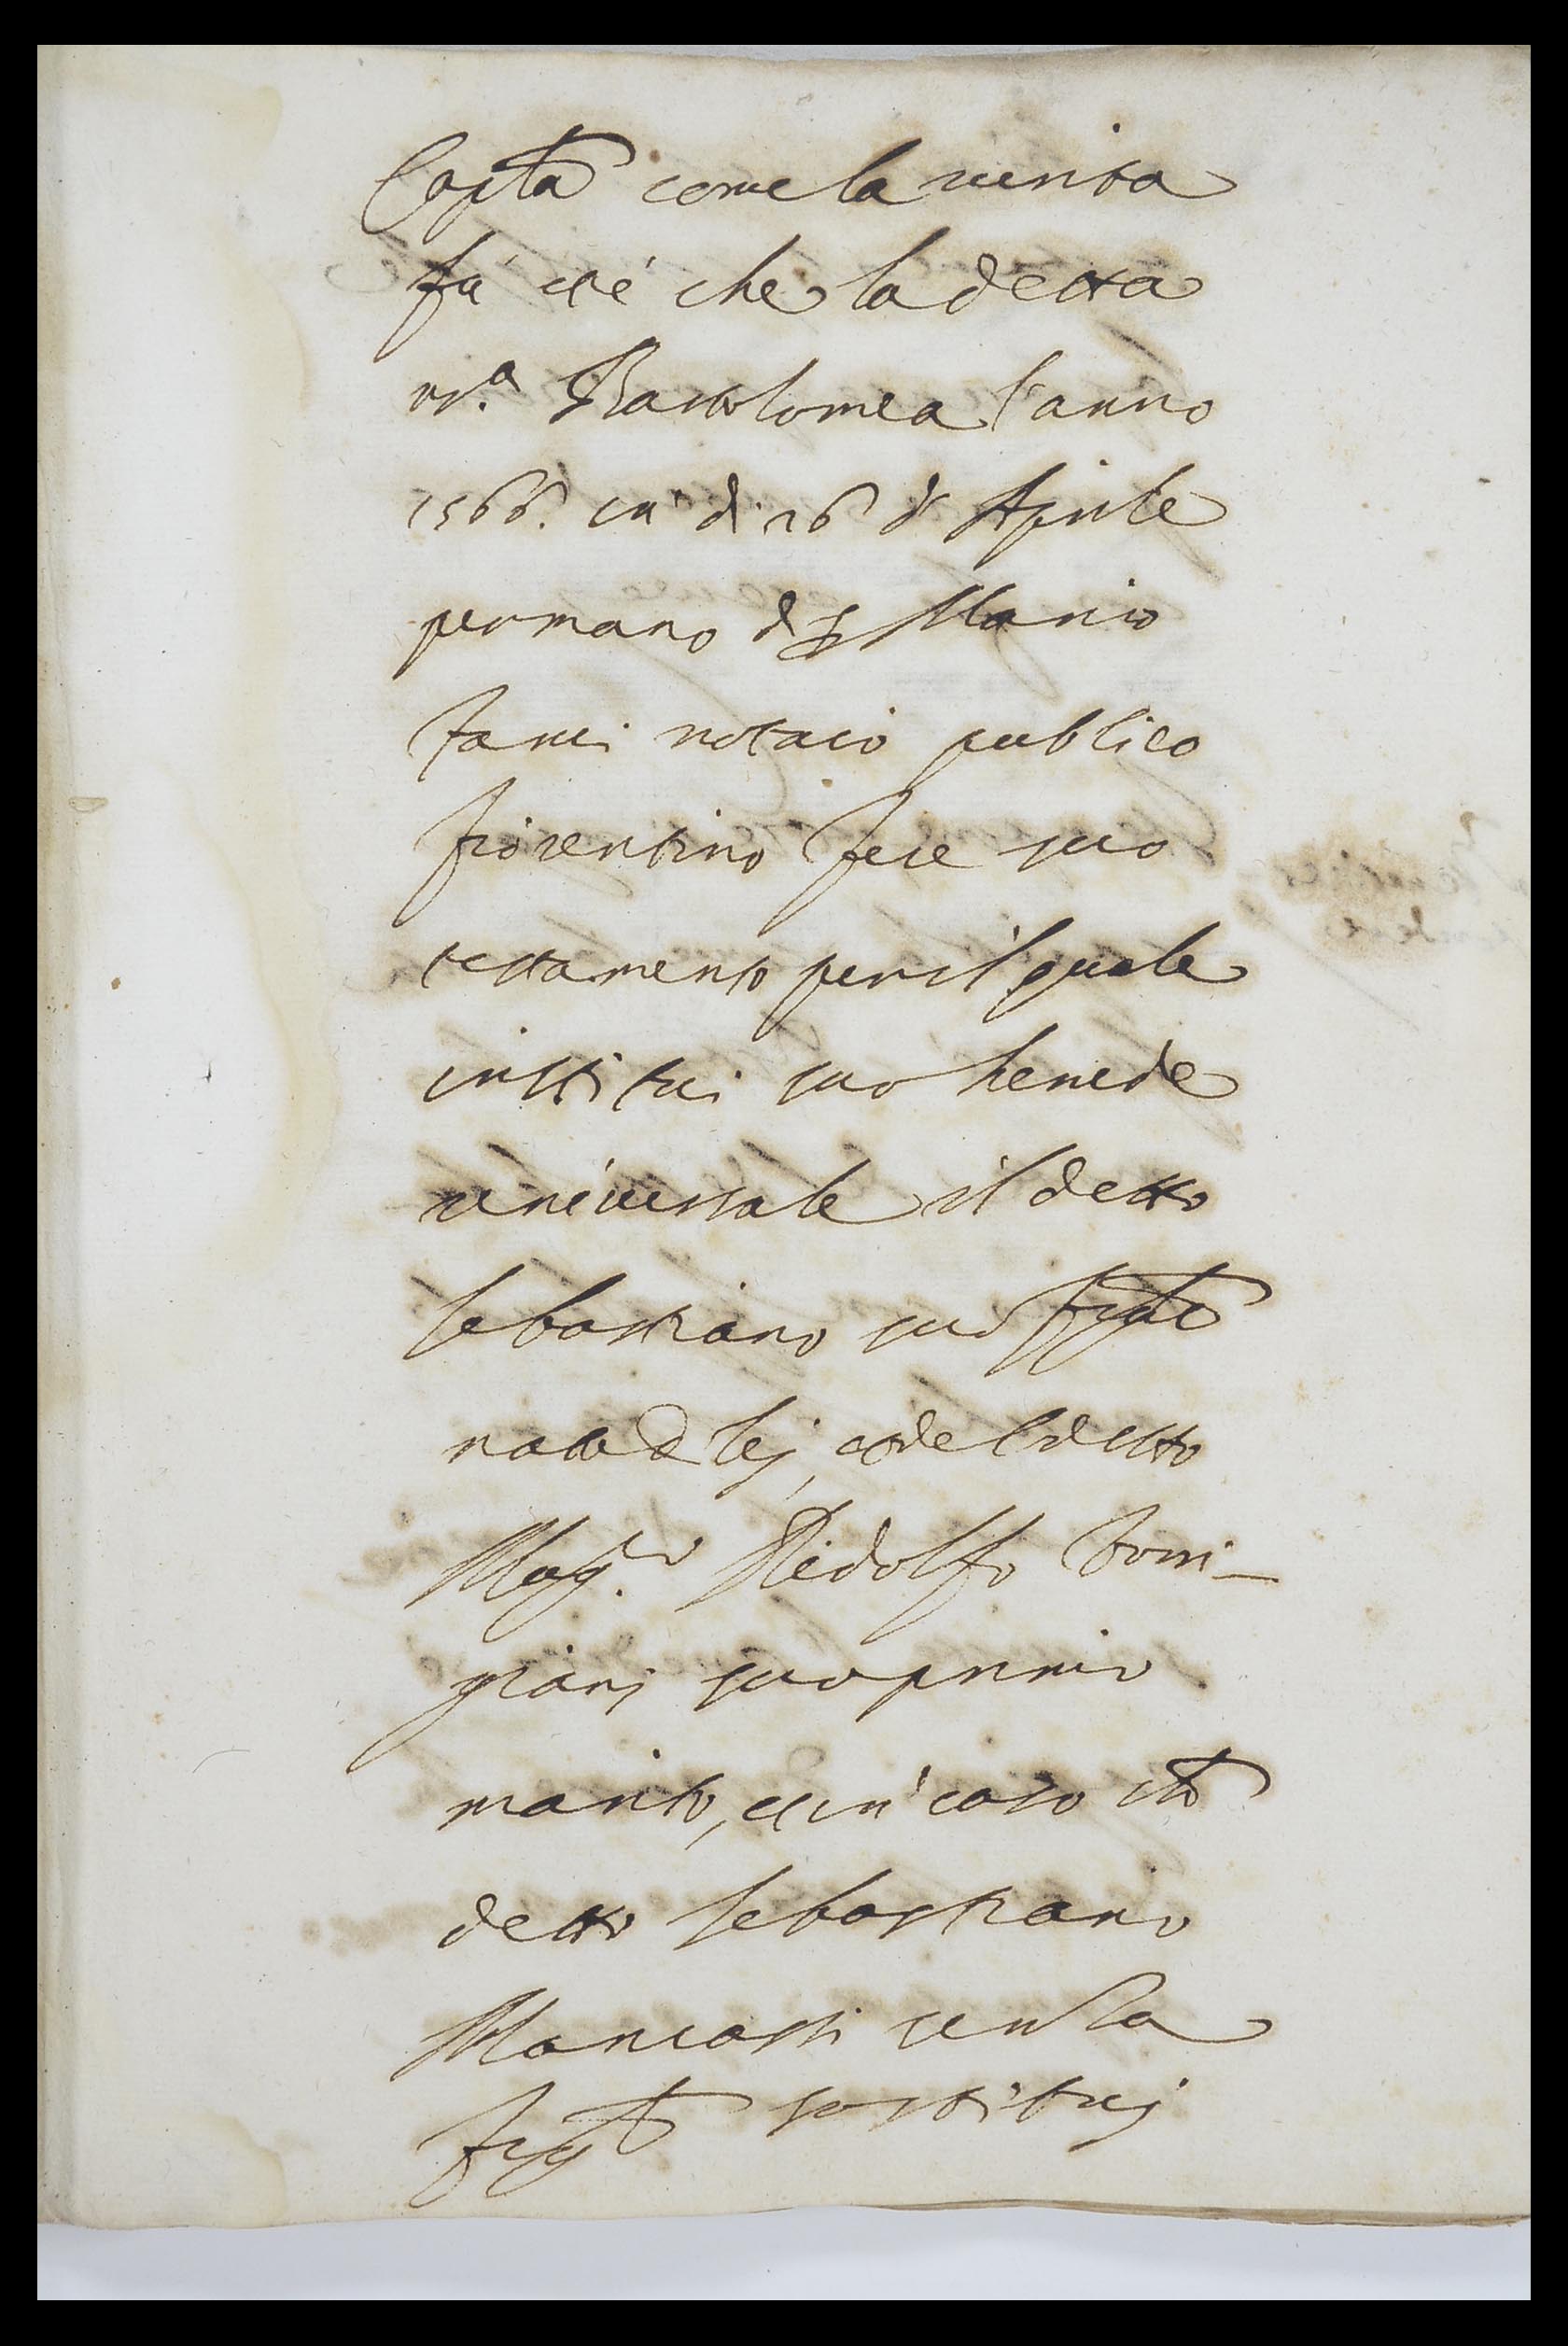 Copta come la verita
fu et è che la detta
m.ª Bartolomea l'anno
1566. in di 26 di Aprile
per mano di s Mario
Tanci notaio publico
fiorentino fece suo
testamento per il quale
instituì suo herede
universale il detto
Sebastiano suo figlo
nato di lej, et del detto
Mag.co Ridolfo Torri-
giani suo primo
marito, et in caso che
detto Sebastiano
Mancassi senza
figli sostituj